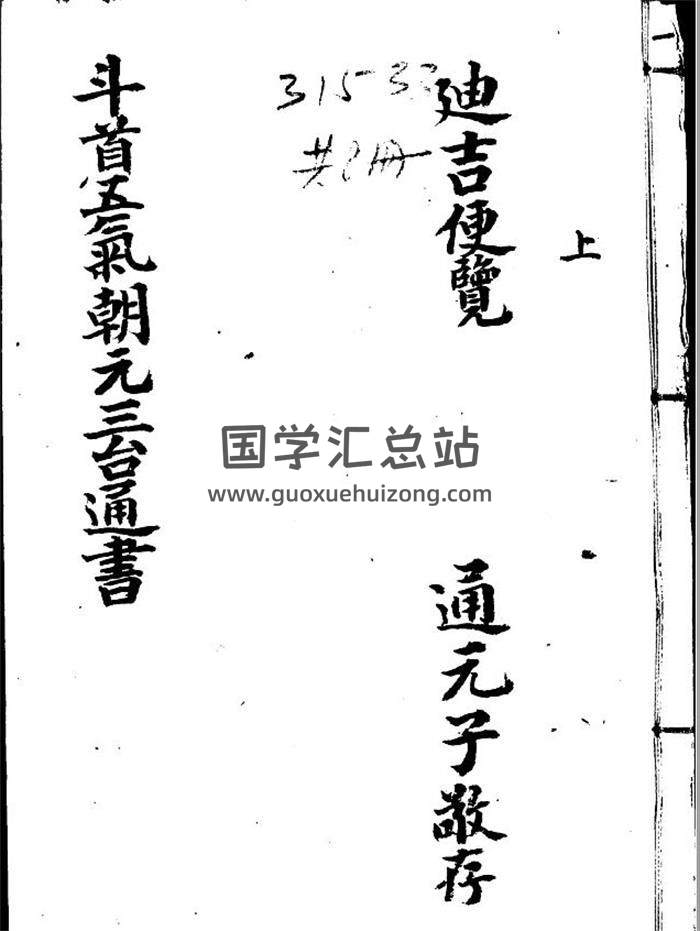 上
廸吉便覽
通元子敬存
共2冊
斗首五氣朝元三台通書
国学汇总站
www.guoxuehuizong.com